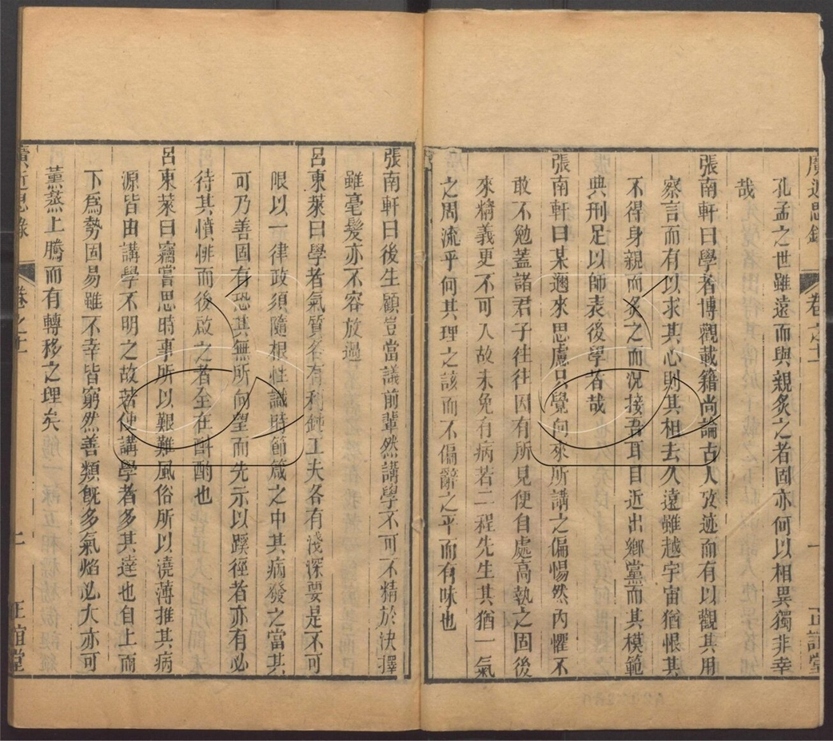 廣近思錄
卷之十一
一
正誼堂
孔孟之世雖遠而與親炙之者固亦何以相異獨非幸
哉
張南軒曰學者博觀載籍尚論古人攷迹而有以觀其用
察言而有以求其心則其相去久遠雖越宇宙猶恨其
不得身親而炙之而況接吾耳目近出鄉黨而其模範
典刑足以師表後學者哉
張南軒曰某邇來思慮只覺向來所講之偏惕然內懼不
敢不勉蓋諸君子往往因有所見便自處高執之固後
來精義更不可入故未免有病若二程先生其猶一氣
之周流乎何其理之該而不偏辭之平而有味也
張南軒曰後生顧豈當議前輩然講學不可不精於決擇
雖毫髮亦不容放過
呂東萊曰學者氣質各有利鈍工夫各有淺深要是不可
限以一律政須隨根性識時節箴之中其病發之當其
可乃善固有恐其無所向望而先示以蹊徑者亦有必
待其憤悱而後啟之者全在斟酌也
呂東萊曰竊嘗思時事所以艱難風俗所以澆薄推其病
源皆由講學不明之故若使講學者多其達也自上而
下為勢固易雖不幸皆窮然善類旣多氣焰必大亦可
薰蒸上騰而有轉移之理矣
廣近思錄
卷之十一
二
正誼堂